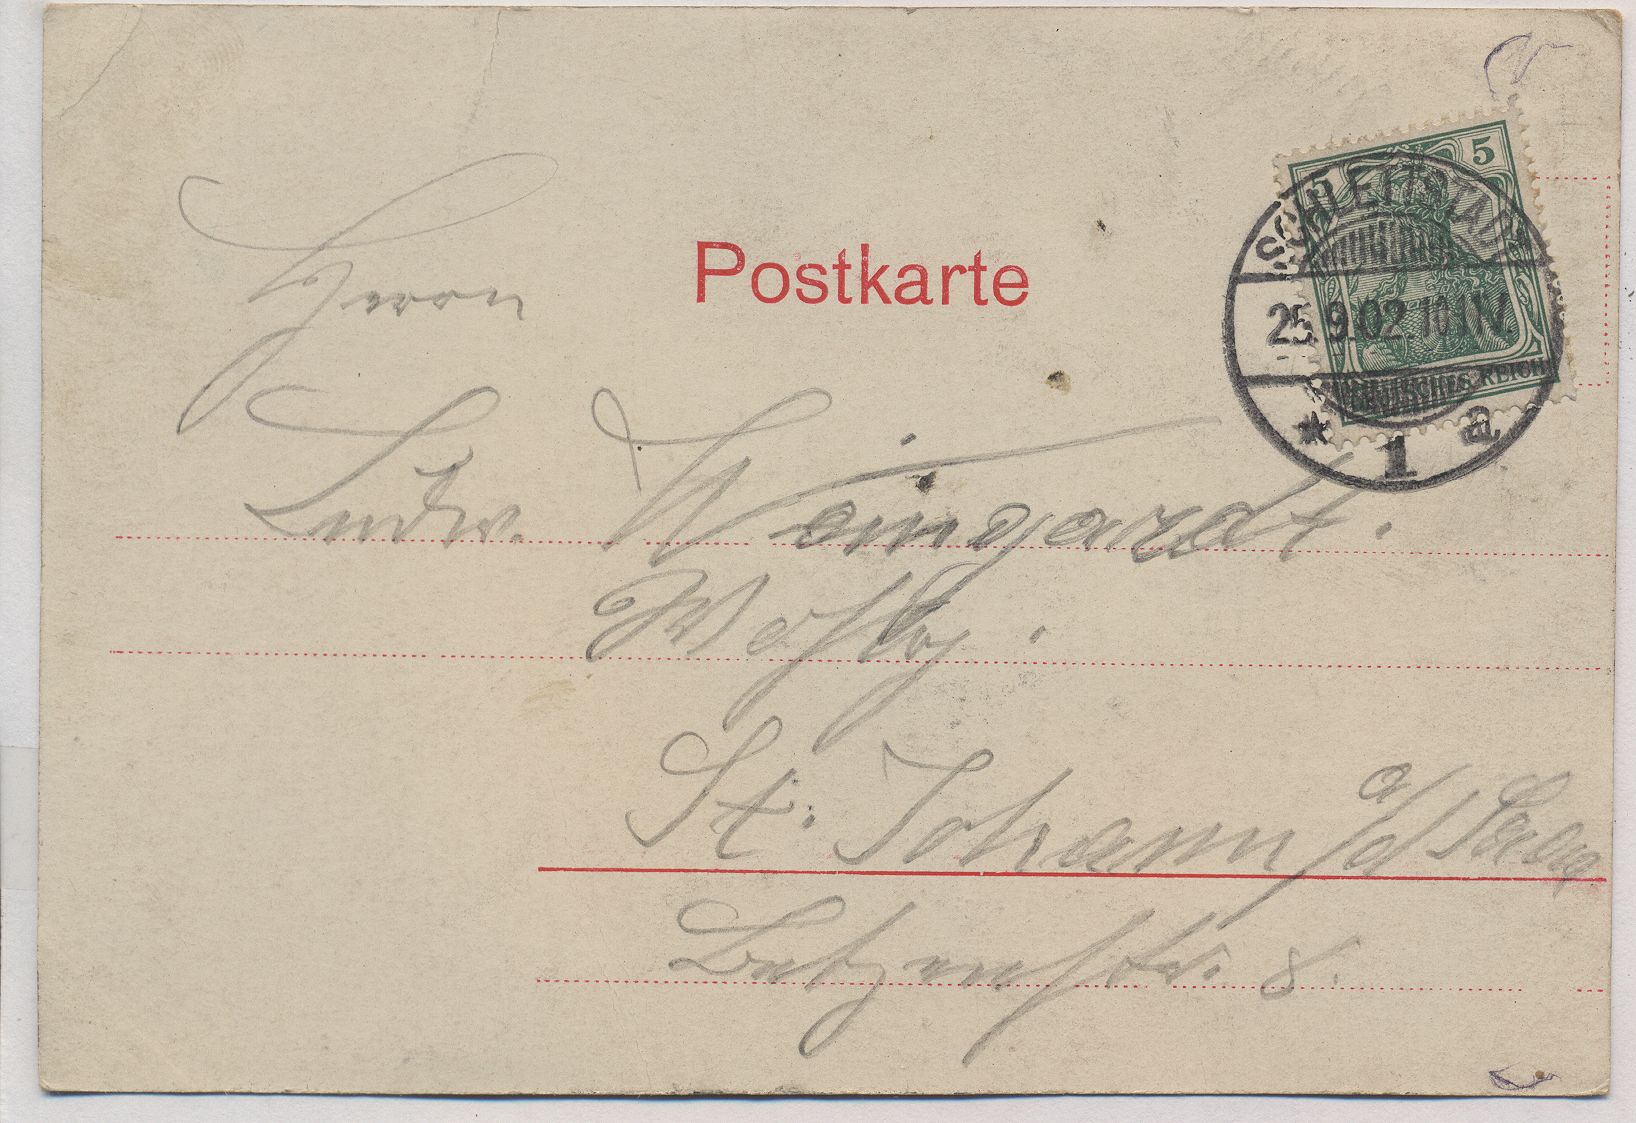 Postkarte
5 5
SCHLETTSTADT
25.9.02.10-11V.
DEUTSCHES REICH
* 1 a
Herrn
Ludw. Weingardt.
St. Johann a/d Saar
8.